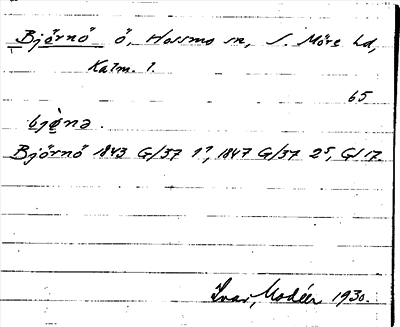 Björnö ö, Hossmo sn, S. Möre hd,
Kalm. l.
65
bjø̀nə.
Björnö 1843 G/37 1?, 1847 G/37 25, G/17.
Ivar Modéer 1930.